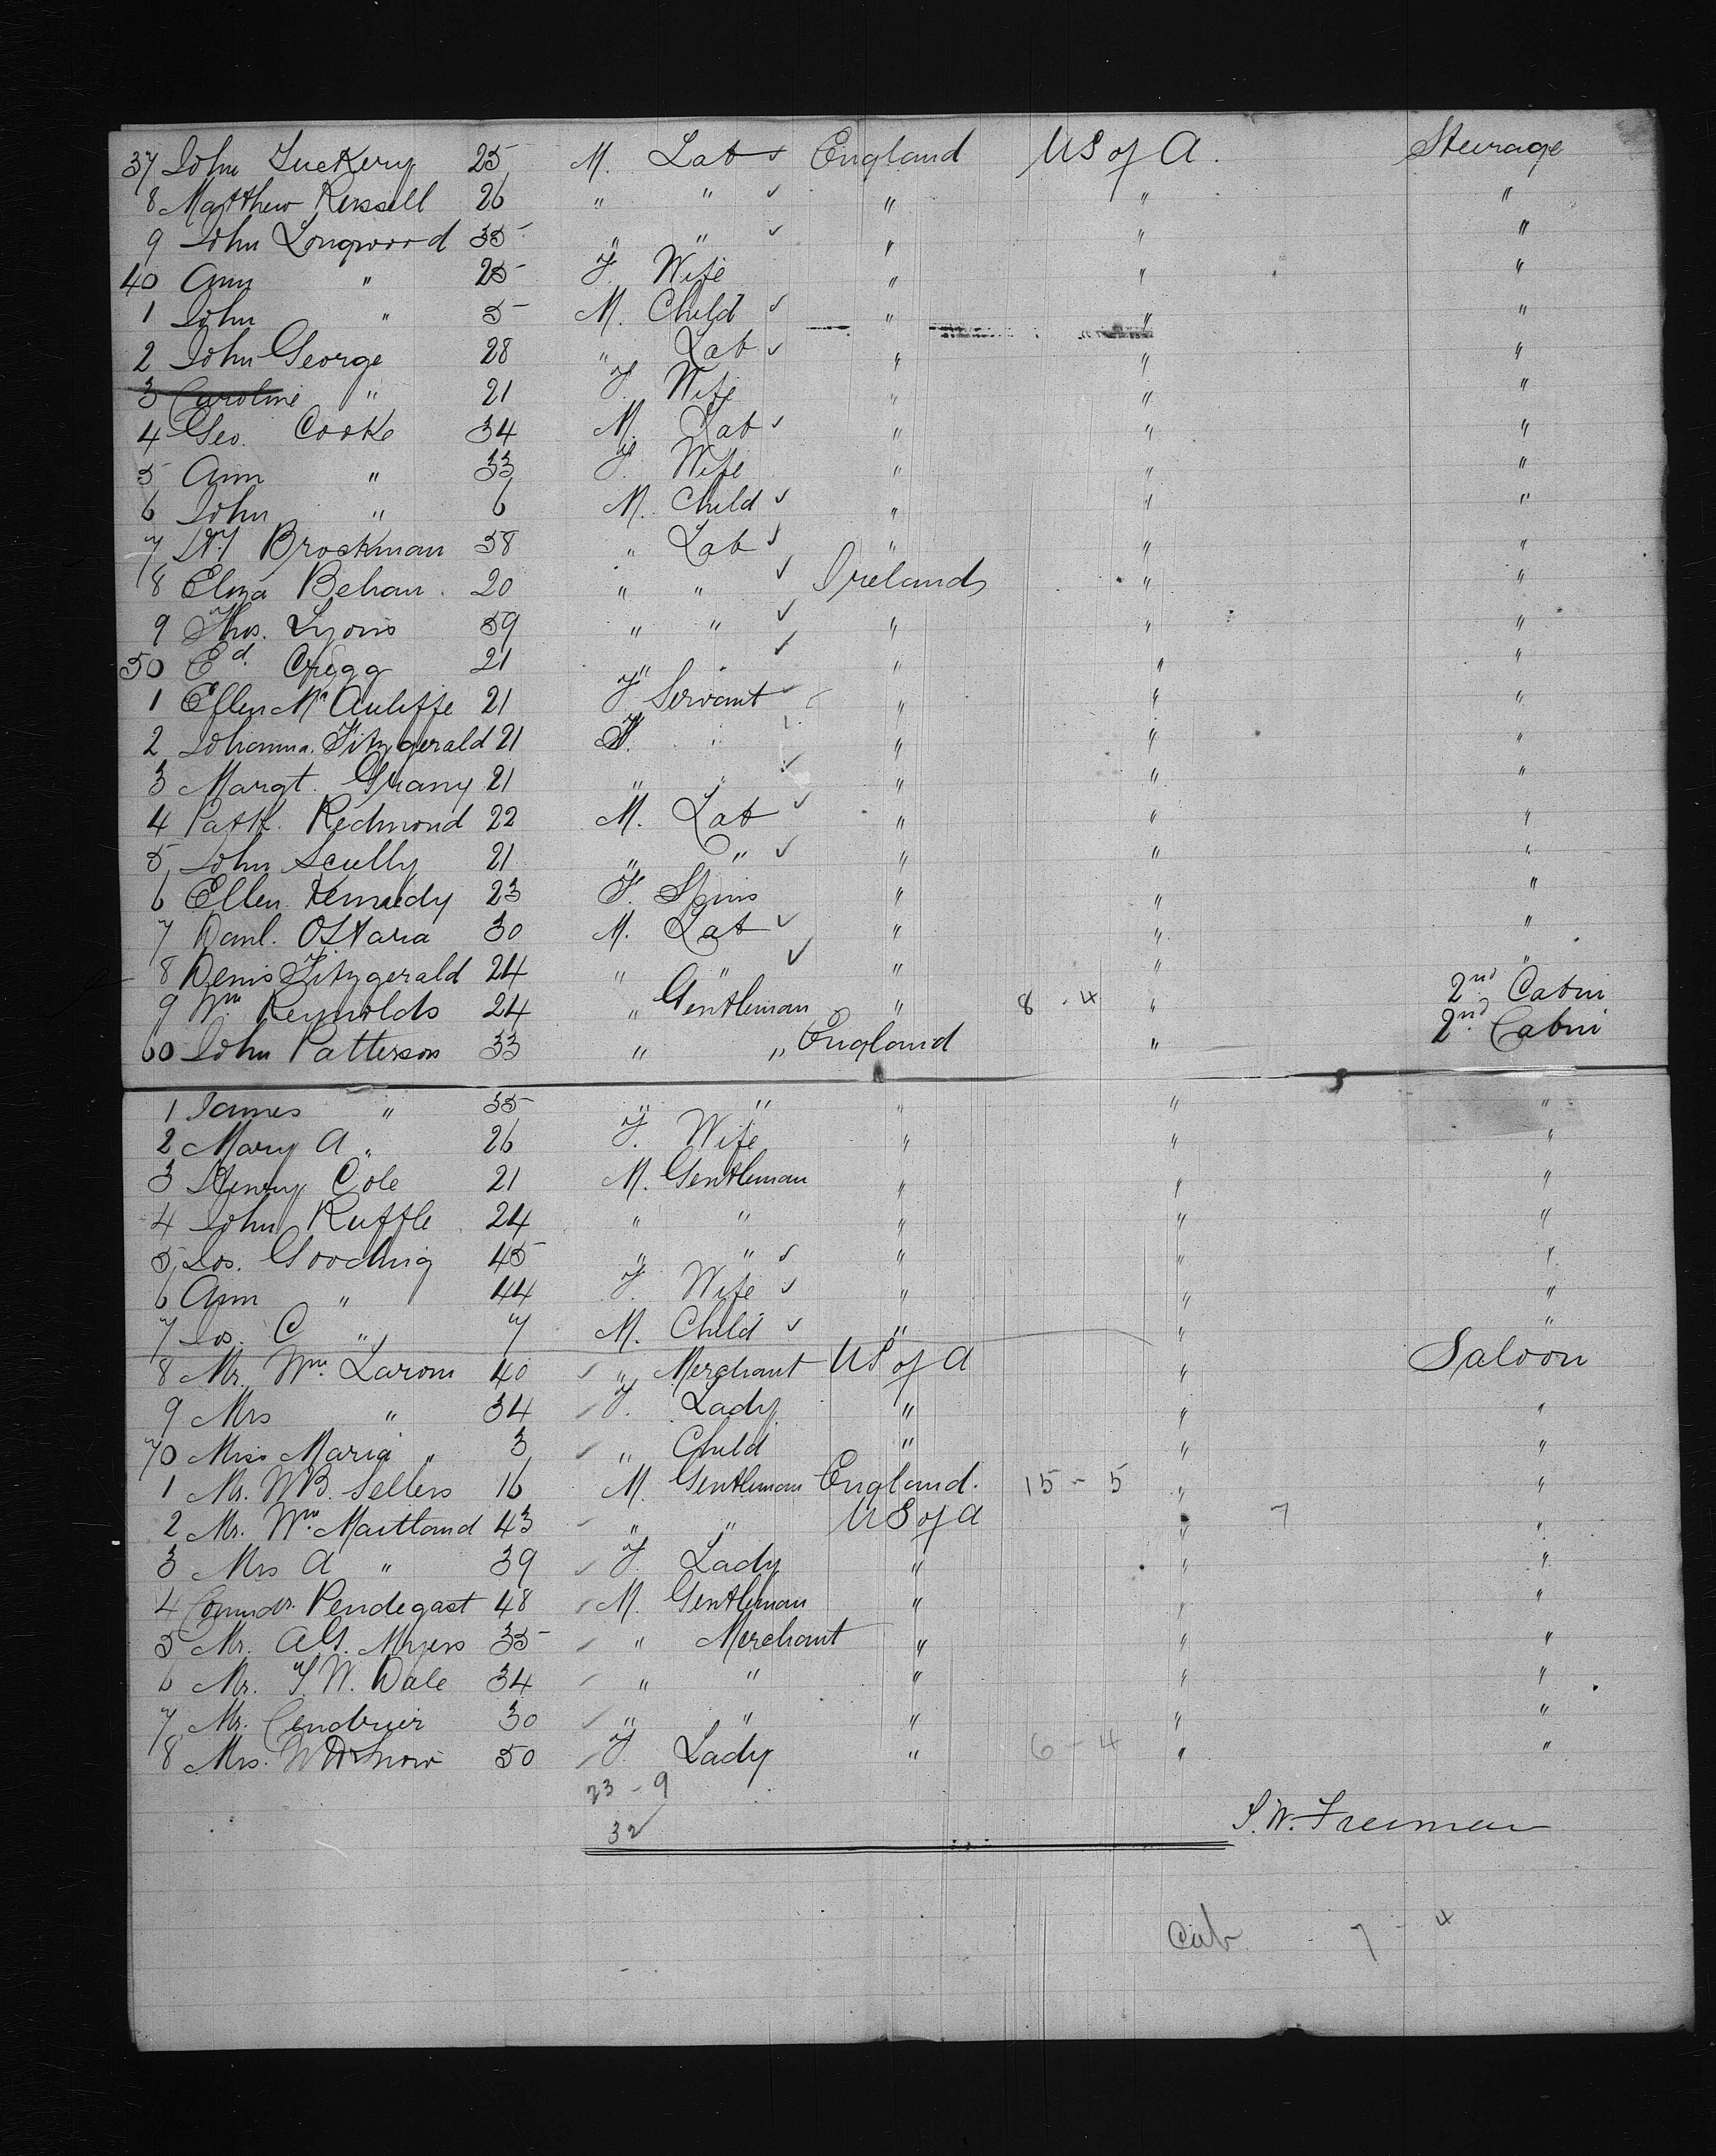 37 John Luckery 25 M. Lab ✓ England US of A. Steerage
8 Matthew Russell 26 " " ✓ " " "
9 John Longwood 35 " " ✓ " " "
40 Ann " 25 F. Wife " " "
1 John " 5 M. Child ✓ " " "
2 John George 28 " Lab ✓ " " "
3 Caroline " 21 F. Wife " " "
4 Geo. Cooke 34 M. Lab ✓ " " "
5 Ann " 33 F. Wife " " "
6 John " 6 M. Child ✓ " " "
7 Brockman 38 " Lab ✓ " " "
8 Eliza Behan. 20 " " ✓ Ireland " "
9 Thos. Lyons 59 " " ✓ " " "
50 Ed. Gregg 21 " ✓ " " "
1 Ellen Mc Auliffe 21 F Servant ✓ " " "
2 Johanna. Fitzgerald 21 F. " " " "
3 Margt. Grany 21 " " ✓ " " "
4 Patk. Redmond 22 M. Lab ✓ " " "
5 John Scully 21 " " ✓ " " "
6 Ellen Kennedy 23 F. Spins " " "
7 Danl. O'Hara 30 M. Lab ✓ " " "
8 Denis Fitzgerald 24 " " ✓ " " "
9 Wm. Reynolds 24 " Gentleman " 8 - 4 " 2nd Cabin
60 John Patterson 33 " " England " 2nd Cabin
1 James " 35 " " " " "
2 Mary A " 26 F. Wife " " "
3 Henry Cole 21 M. Gentleman " " "
4 John Ruffle 24 " " " " "
5 Jos. Gooding 45 " " ✓ " " "
6 Ann " 44 F. Wife ✓ " " "
7 Jos. C " 7 M. Child ✓ " " "
8 Mr. Wm. Larom 40 ✓ " Merchant US of A " Saloon
9 Mrs " 34 ✓ F. Lady " " "
70 Miss Maria " 3 ✓ " Child " " "
1 Mr. W.B. Sellers 16 M. Gentleman England. 15 - 5 " "
2 Mr. Wm. Maitland 43 ✓ " " US of A " 7 "
3 Mrs A " 39 ✓ F. Lady " " "
4 Commdr. Pendegast 48 ✓ M. Gentleman " " "
5 Mr. Myers 35 ✓ " Merchant " " "
6 Mr. T.W. Dale 34 ✓ " " " " "
7 Mr. Cendrier 30 ✓ " " " " "
8 Mrs. Snow 50 ✓ F. Lady " 6 - 4 " "
23 - 9
32
S.W. Freeman
Cab 7 - 4